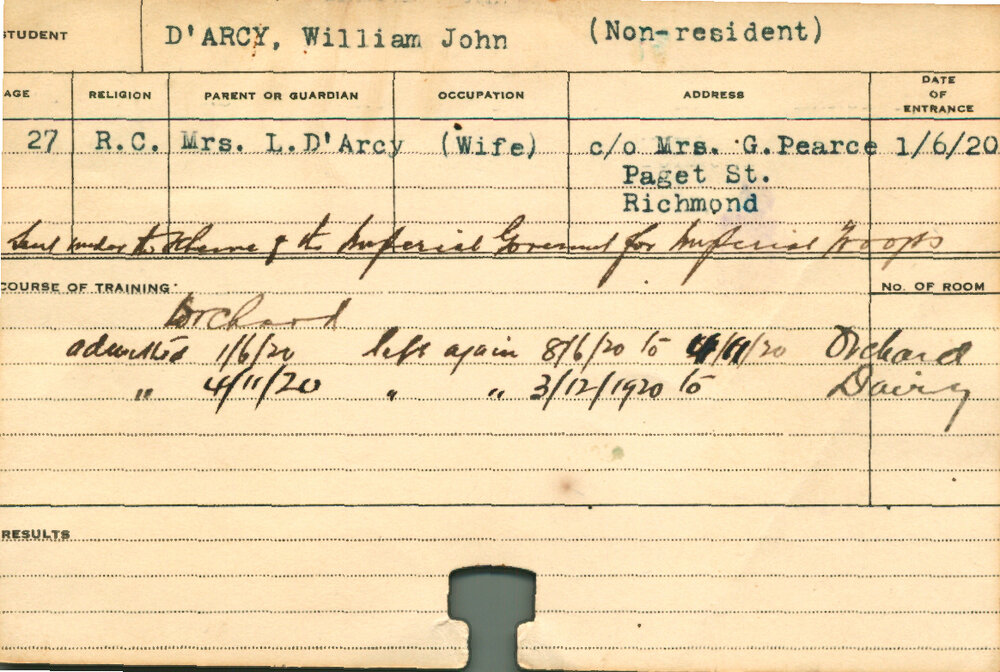 STUDENT D'ARCY, William John (Non-resident)
AGE RELIGION PARENT OR GUARDIAN OCCUPATION ADDRESS DATE OF ENTRANCE
27 R.C. Mrs. L.D'Arcy (Wife) c/o Mrs. G.Pearce 1/6/20
Paget St.
Richmond
Sent under the Scheme of the Imperial Goverment for Imperial Troops
COURSE OF TRAINING No. OF ROOM
Orchard
admitted 1/6/20 left again 8/6/20 to 4/11/20 Orchard
" 4/11/20 " " 3/12/1920 to Dairy
RESULTS